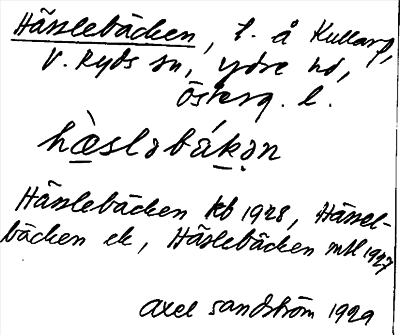 Hässlebäcken, t. å Kullarp,
V. Ryds sn, Ydre hd,
Österg. l.
hæ̀sləbákən
Hässlebäcken kb 1928, Hässel-
bäcken ek, Häslebäcken mtl 1927
Axel Sandström 1929